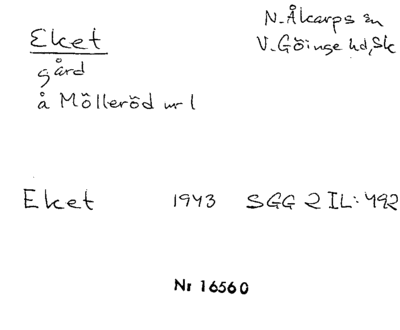 Eket
N. Åkarps sn
V. Göinge hd, Sk
gård
å Mölleröd nr 1
Eket 1943 SGG 2 II: 492
Nr 16560